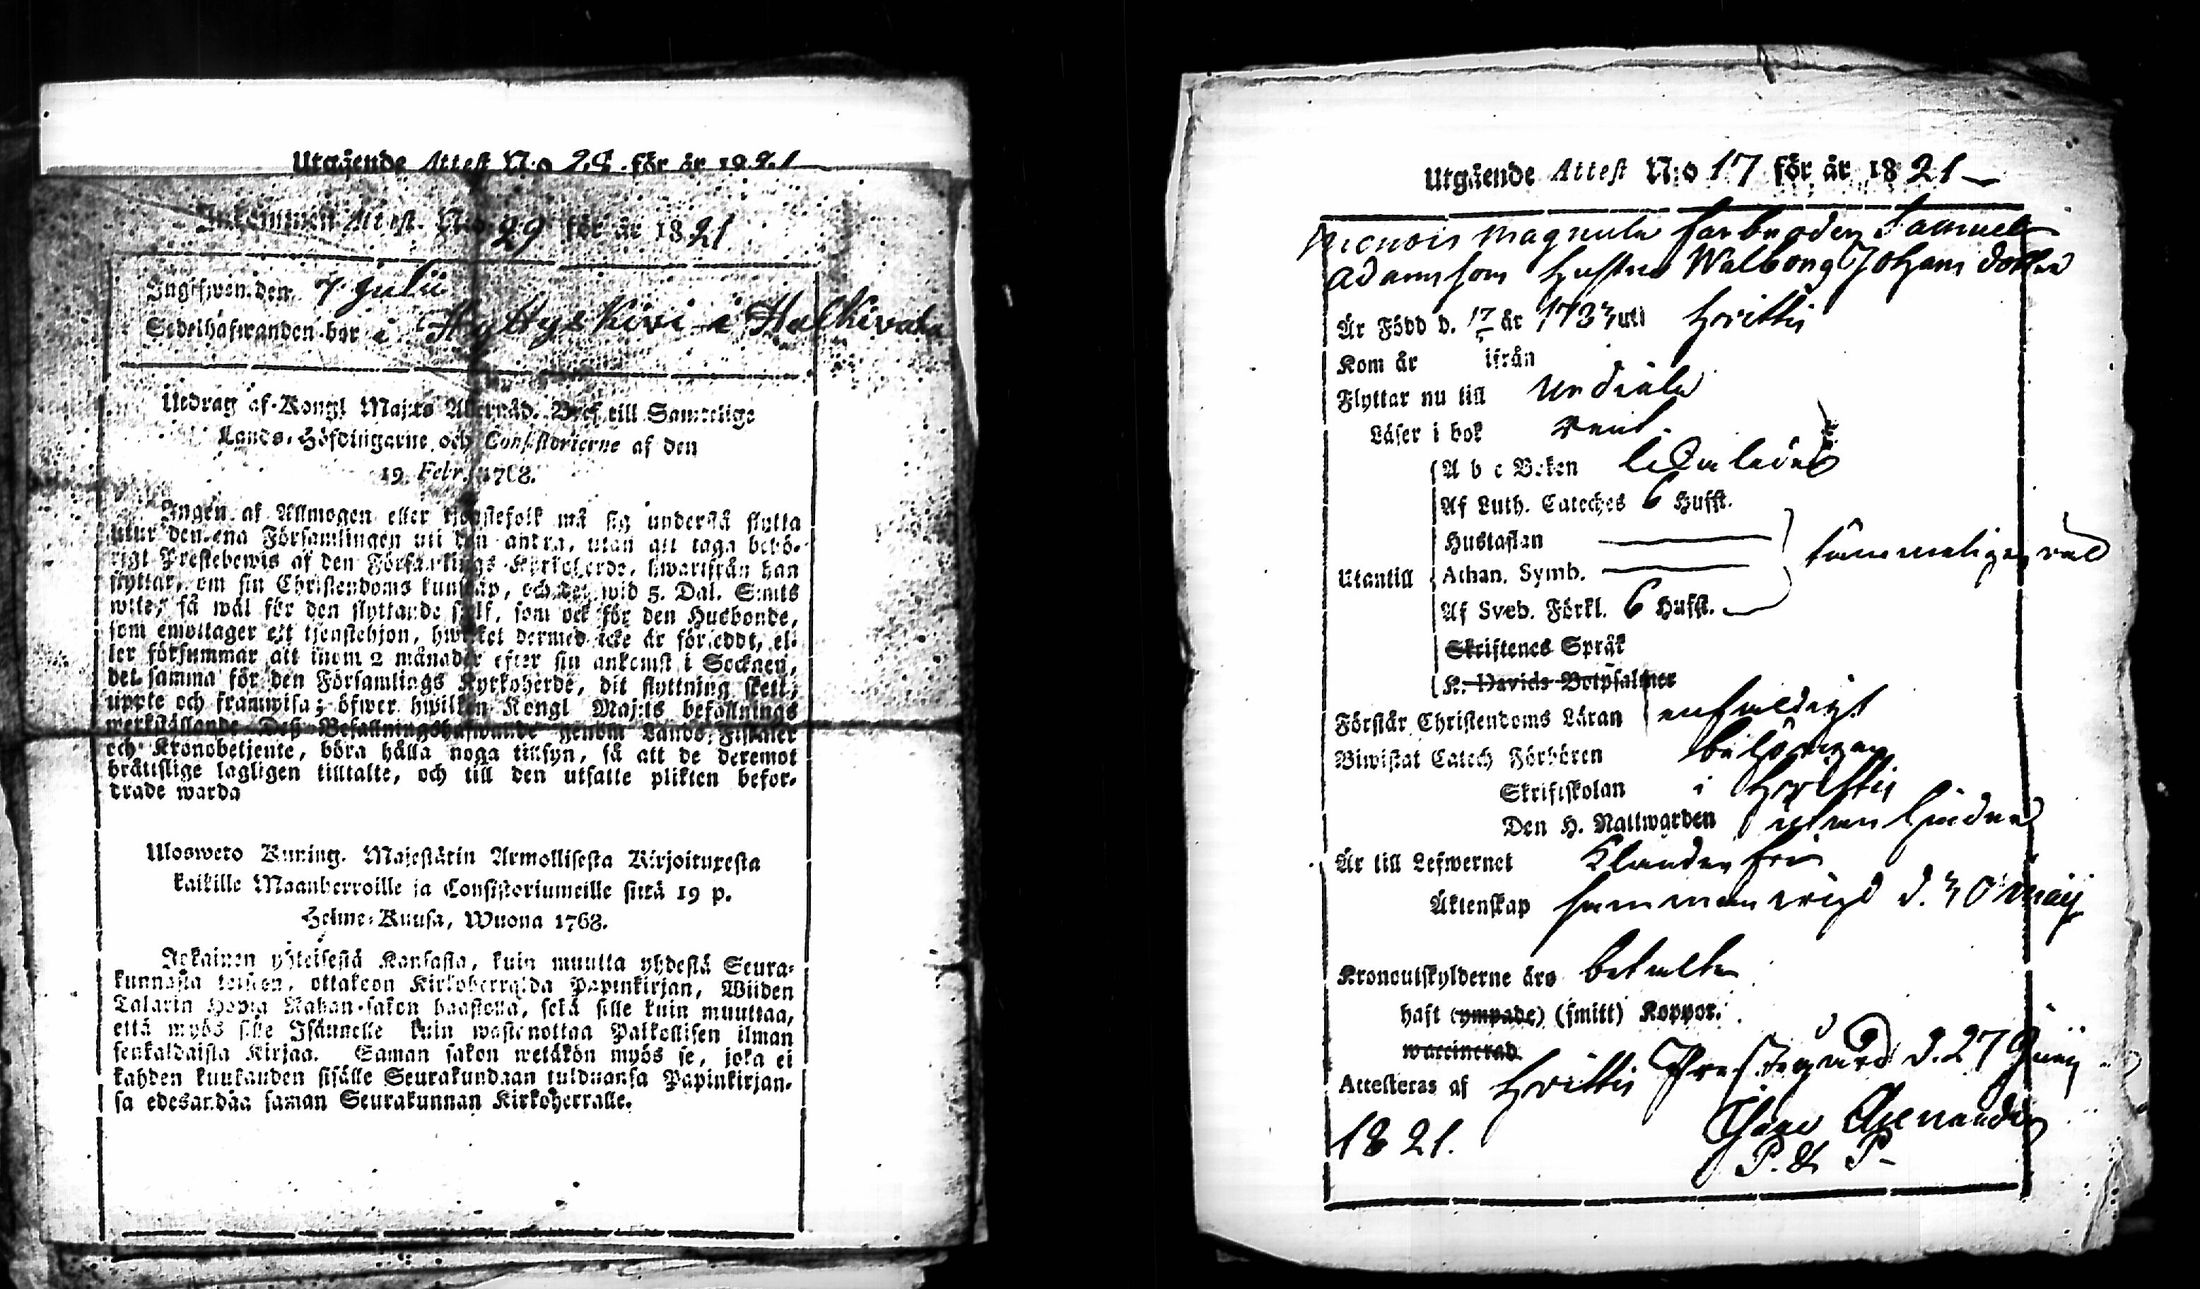 Utgående Attest N:o 28 för år 1821
Inkommen Attest N:o 29 för år 1821
Ingifwen den 7 Julii
Sedelhafwanden bor i Hyttyskivi i Halkivaha
Utdrag af Kongl Maj:ts Allernåd. Bref till Samtelige
Lands-Höfdingarne och Consistorierne af den
19 Febr. 1768.
Ingen af Allmogen eller tjenstefolk må sig understå flytta
utur den ena Församlingen uti den andra, utan att taga behö-
rigt Prestebewis af den Församlings Kyrkoherde, hwarifrån han
flyttar, om sin Christendoms kunskap, och det wid 5. Dal. S:mts
wite, så wäl för den flyttande sjelf, som ock för den Husbonde,
som emottager ett tjenstehjon, hwilket dermed icke är försedt, el-
ler försummar att inom 2 månader efter sin ankomst i Socknen,
det samma för den Församlings Kyrkoherde, dit flyttning skett,
uppte och framwisa; öfwer hwilken Kongl Maj:ts befallnings
werkställande Deß Befallningshafwande genom Lands-Fiskaler
och Kronobetjente, böra hålla noga tillsyn, så att de deremot
brättslige lagligen tilltalte, och till den utsatte plikten befor-
drade warda
Ulosweto Kuning. Majestätin Armollisesta Kirjoituxesta
kaikille Maanherroille ja Consistoriumeille siitä 19 p.
Helme-Kuusa, Wuona 1768.
Jokainen yhteisestä Kansasta, kuin muutta yhdestä Seura-
kunnasta toiseen, ottakoon Kirkoherralda Papinkirjan, Wiiden
Talarin Hopia Rahan-sakon haastolla, sekä sille kuin muuttaa,
että myös sille Isännelle kuin wastanottaa Palkollisen ilman
senkaldaista Kirjaa. Saman sakon wetäkön myös se, joka ei
kahden kuukauden sisälle Seurakundaan tulduansa Papinkirjan-
sa edesandaa saman Seurakunnan Kirkoherralle.
Utgående Attest N:o 17 för år 1821
Magnula farbroder Samuel
Adamsson Hustru Walborg Johans dotter
Är Född d. 17 år 1773 uti Hvittis
Kom år ifrån
Flyttar nu till Urdiala
Läser i bok rent
A b c Boken
Af Luth. Cateches 6 Hufst.
Hustaflan
Utantill Athan. Symb. tämmeligen väl
Af Sveb. Förkl. 6 Hufst.
Skriftenes Språk
K. Davids Botpsalmer
Förstår Christendoms Läran enfaldigt
Biwistat Catech Förhören behörigen
Skriftskolan i Hvittis
Den H. Nattwarden utan hinder
Är till Lefwernet Klanderfri
Äktenskap sammanvigd d. 30 Maij
Kronoutskylderne äro betalte
haft (ympade) (smitt) Koppor.
waccinerad
Attesteras af Hvittis Prestegård d. 27 Junij
1821.
P. & P.